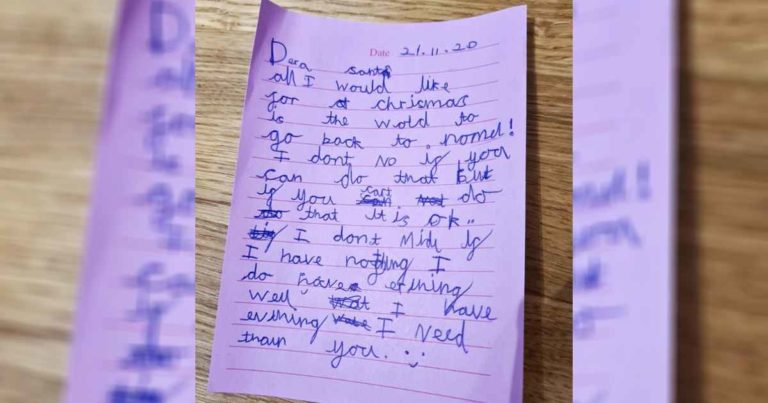 Date 21.11.20
Dera santa
all I would like
for chrismas
is the wold to
go back to nomel!
I dont no if you
can do that but
if you cart do
that it is ok..
I dont Mide if
I have nothing I
do have ething
well I have
evething I Need
than you. :)